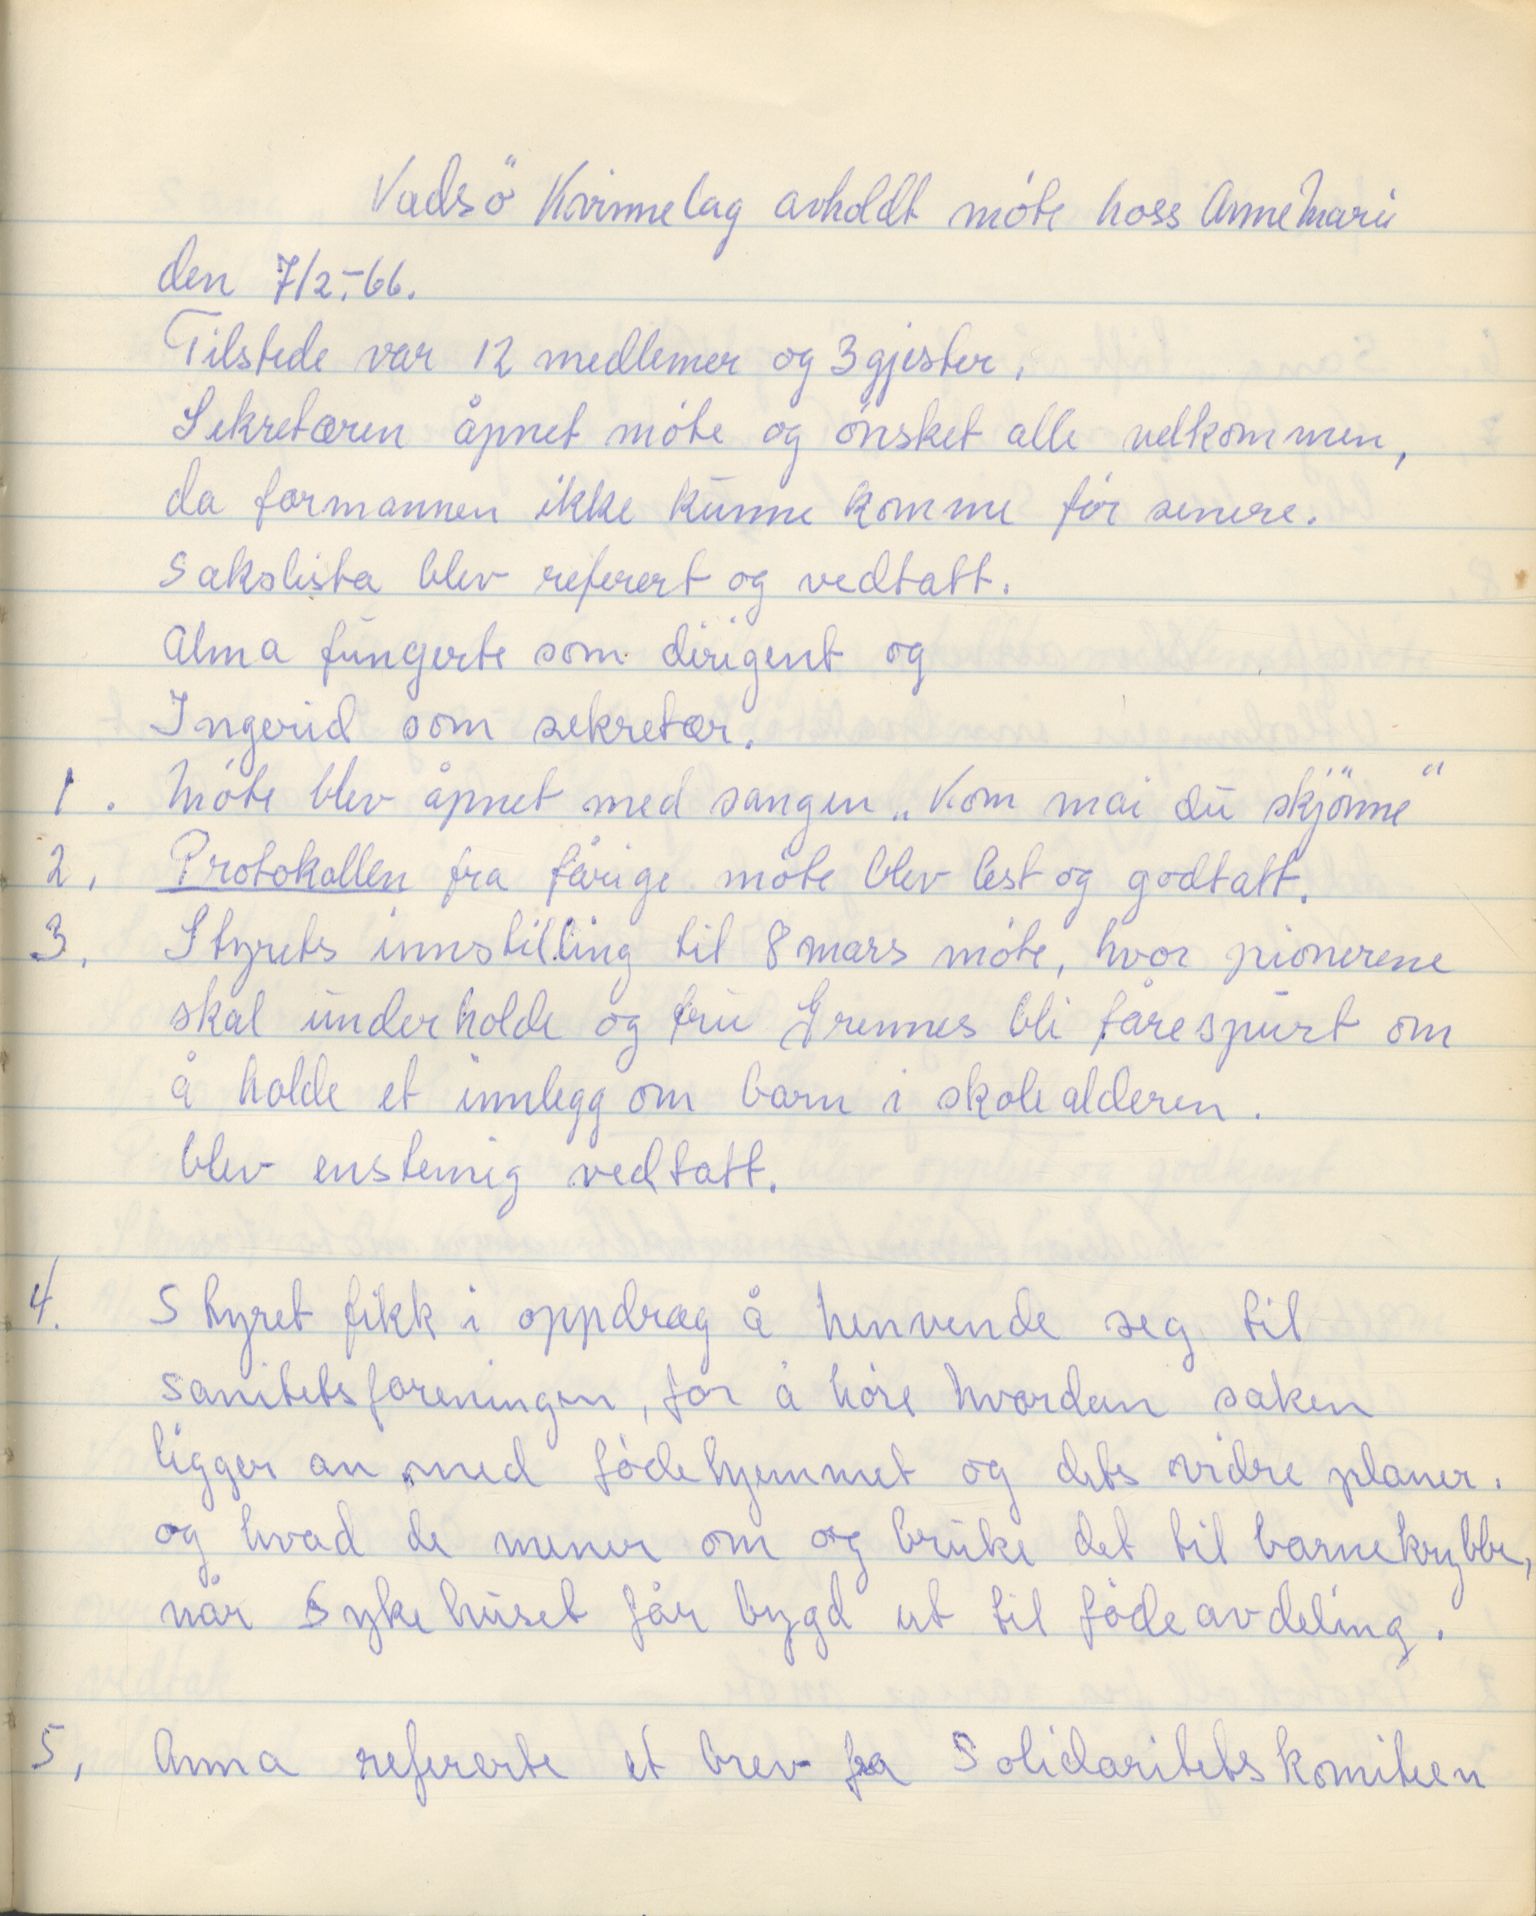 Vadsö Kvinnelag avholdt möte hoss Anne Marie
den 7/2.-66.
Tilstede var 12 medlemer og 3 gjester.
Sekretæren åpnet möte og önsket alle velkommen,
da formannen ikke kunne komme för senere.
Sakslista blev referert og vedtatt.
Alma fungerte som dirigent og
Ingerid som sekretær.
1. Möte blev åpnet med sangen „Kom mai du skjönne"
2. Protokollen fra fårige möte blev lest og godtatt.
3. Styrets innstilling til 8 mars möte, hvor pionerene
skal underholde og fru Grennes bli fårespurt om
å holde et innlegg om barn i skolealderen.
blev enstemig vedtatt.
4. Styret fikk i oppdrag å henvende seg til
sanitetsforeningen, for å höre hvordan saken
ligger an med födehjemmet og dets vidre planer.
og hvad de mener om og bruke det til barnekrybbe,
når Sykehuset får bygd ut til födeavdeling.
5, Anna refererte et brev fra Solidaritetskomiteen